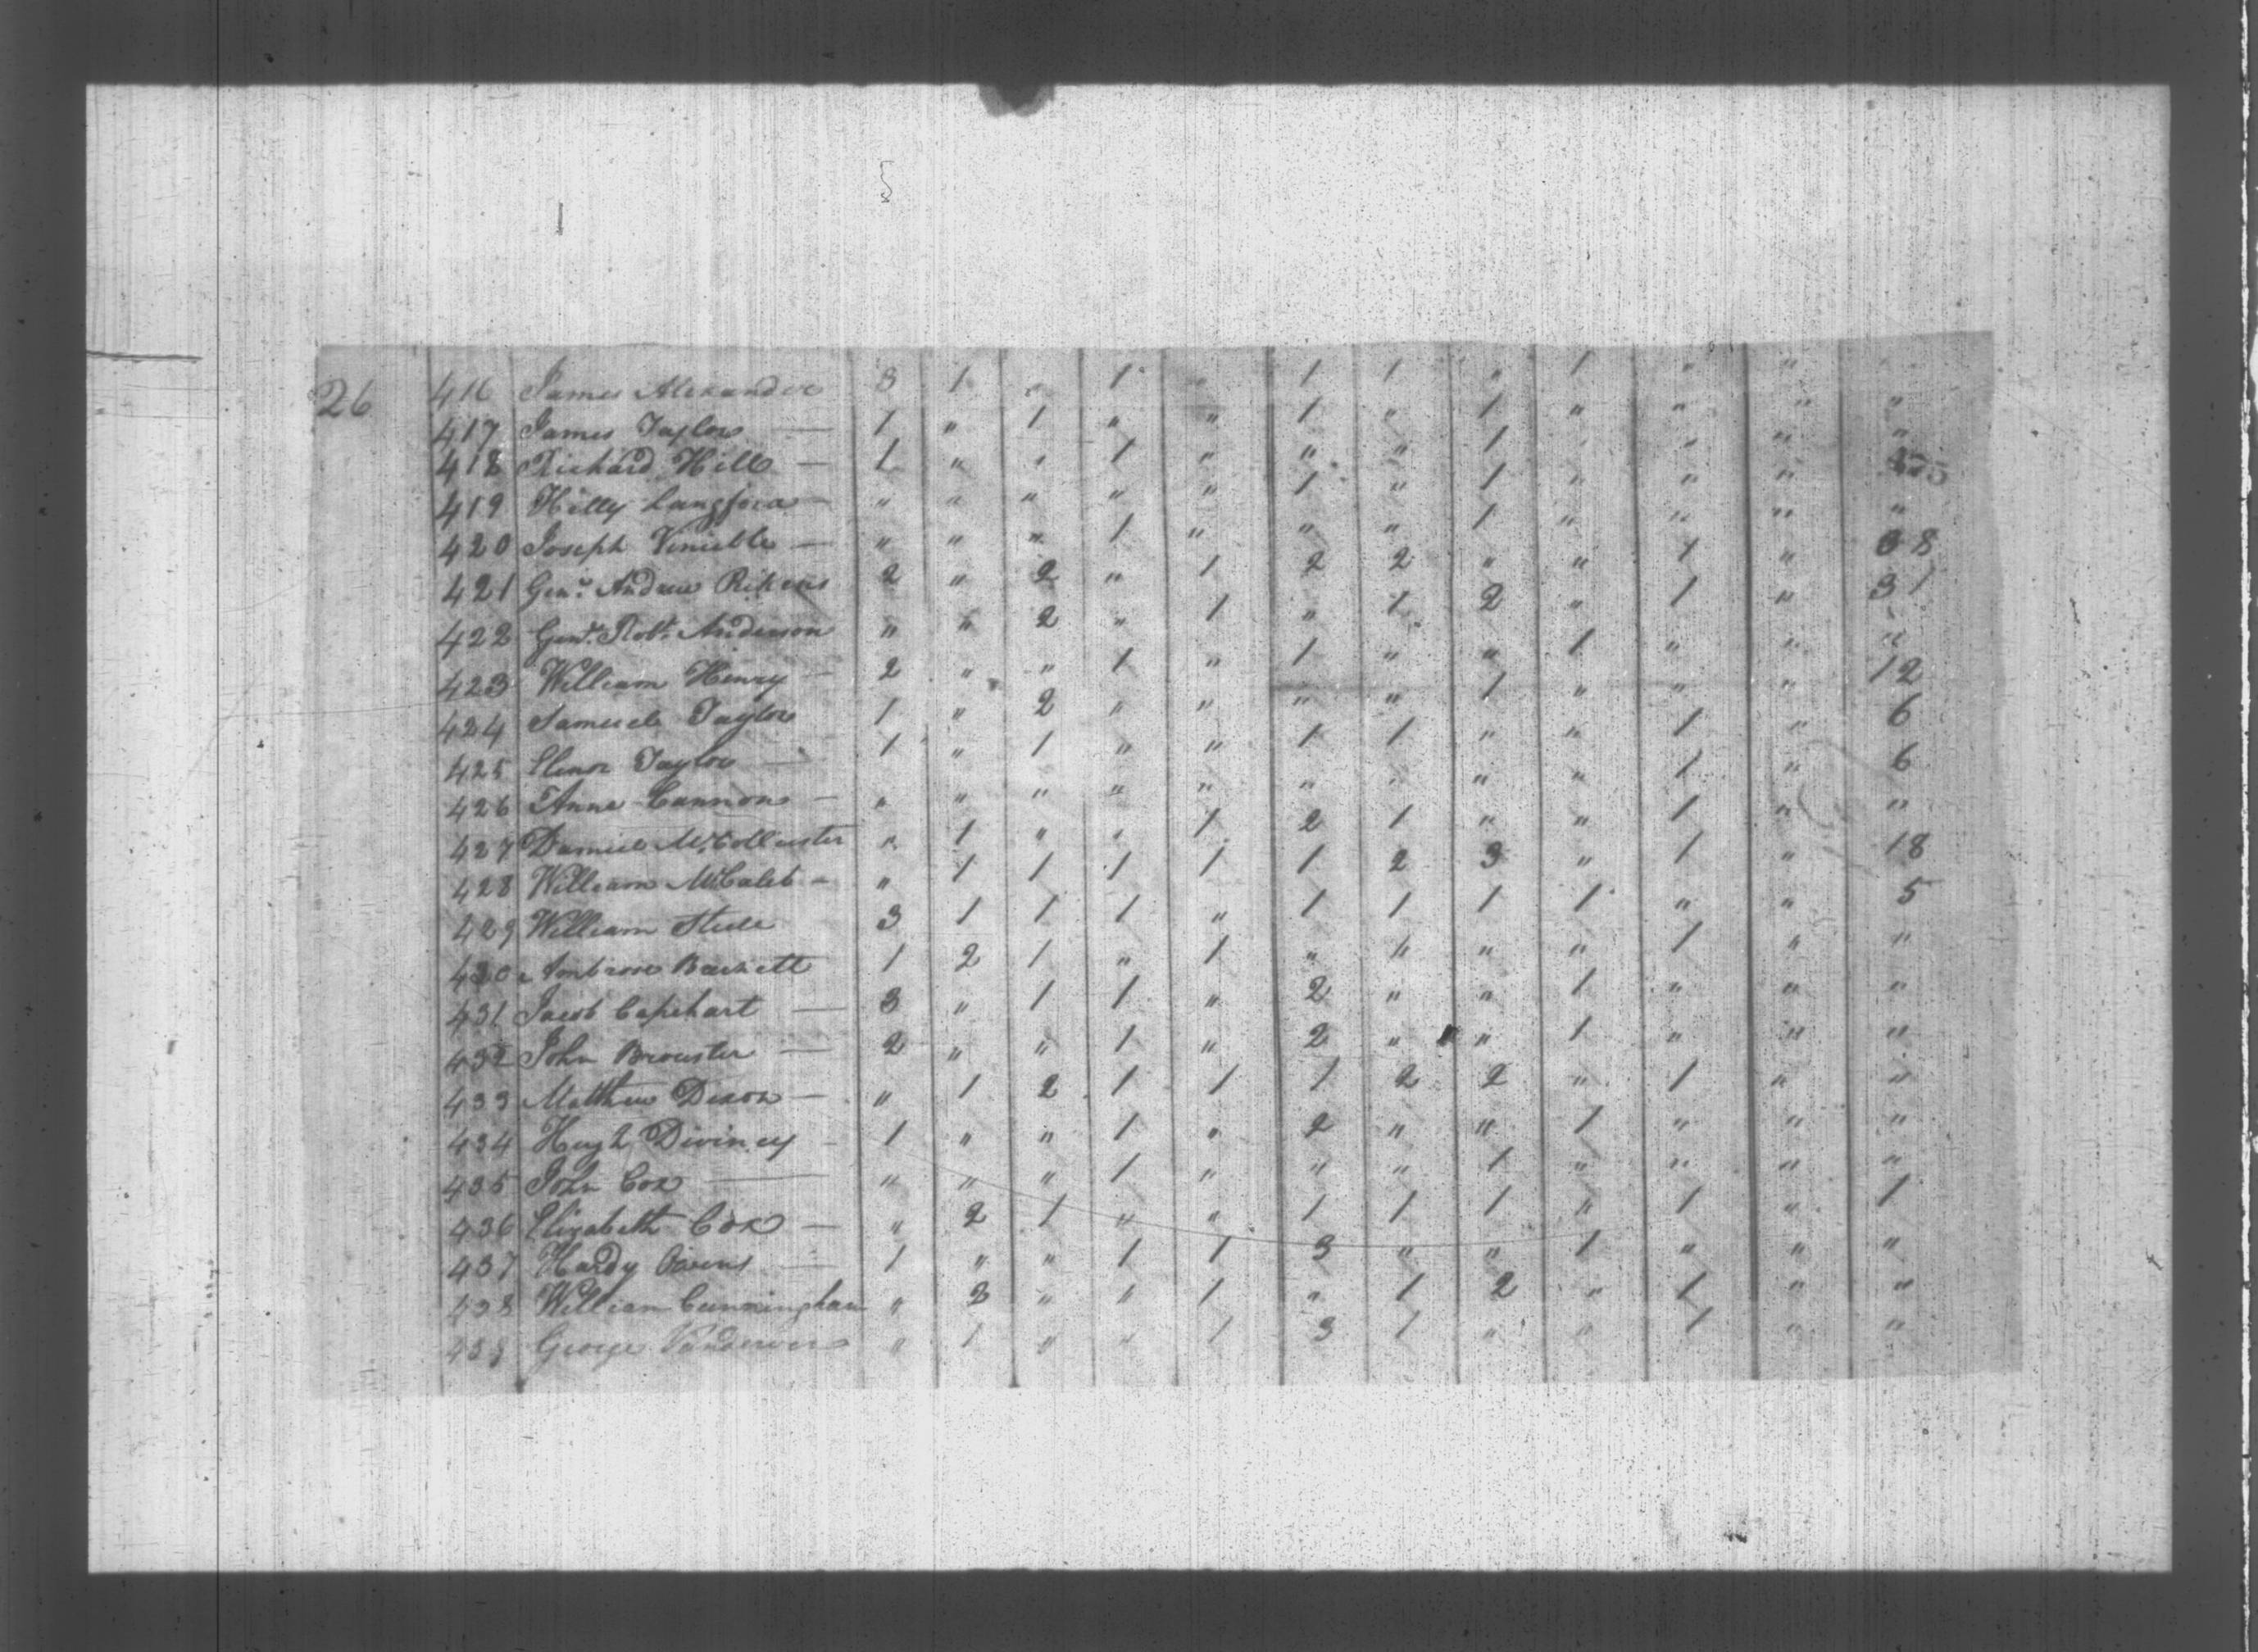 26 416 James Alexander 3 1 " 1 " 1 1 " 1 " "
417 James Taylor — 1 " 1 " " 1 " 1 " " " "
418 Richard Hill — 1 " " 1 " " " 1 " " " "
419 Hilly Langford — " " " " " 1 " 1 " " "
420 Joseph Venible — " " " 1 " " " 1 " " " "
421 Genl. Andrew Pikens 2 " 2 " 1 2 2 " " 1 " 38
422 Genl. Robt. Anderson " " 2 " 1 " 1 2 " 1 " 31
423 William Henry — 2 " " 1 " 1 " " 1 " " "
424 Samuel Taylor 1 " 2 " " " " 1 " " " 12
425 Elenor Taylor — 1 " 1 " " 1 1 " " 1 " 6
426 Anne Cannon — " " " " " " " " " 1 " 6
427 Daniel McCollester " 1 " " 1 2 1 " " 1 " "
428 William McCaleb - " 1 1 1 1 1 2 3 " 1 " 18
429 William Steele 3 1 1 1 " 1 1 1 1 " " 5
430 Ambrose Barnett 1 2 1 " 1 " " " " 1 " "
431 Jacob Capehart — 3 " 1 1 " 2 " " 1 " " "
432 John Brewster — 2 " " 1 " 2 " " 1 " " "
433 Matthew Dixon — " 1 2 1 1 1 2 2 " 1 " "
434 Hugh Diviney - 1 " " 1 " 2 " " 1 " " "
435 John Cox — " " " 1 " " " 1 " " " "
436 Elizabeth Cox — " 2 1 " " 1 1 1 " 1 " 1
437 Hardy Owens — 1 " " 1 1 3 " " 1 " " "
438 William Cunningham " 3 " " 1 " 1 2 " 1 " "
439 George " 1 " " 1 3 1 " " 1 " "